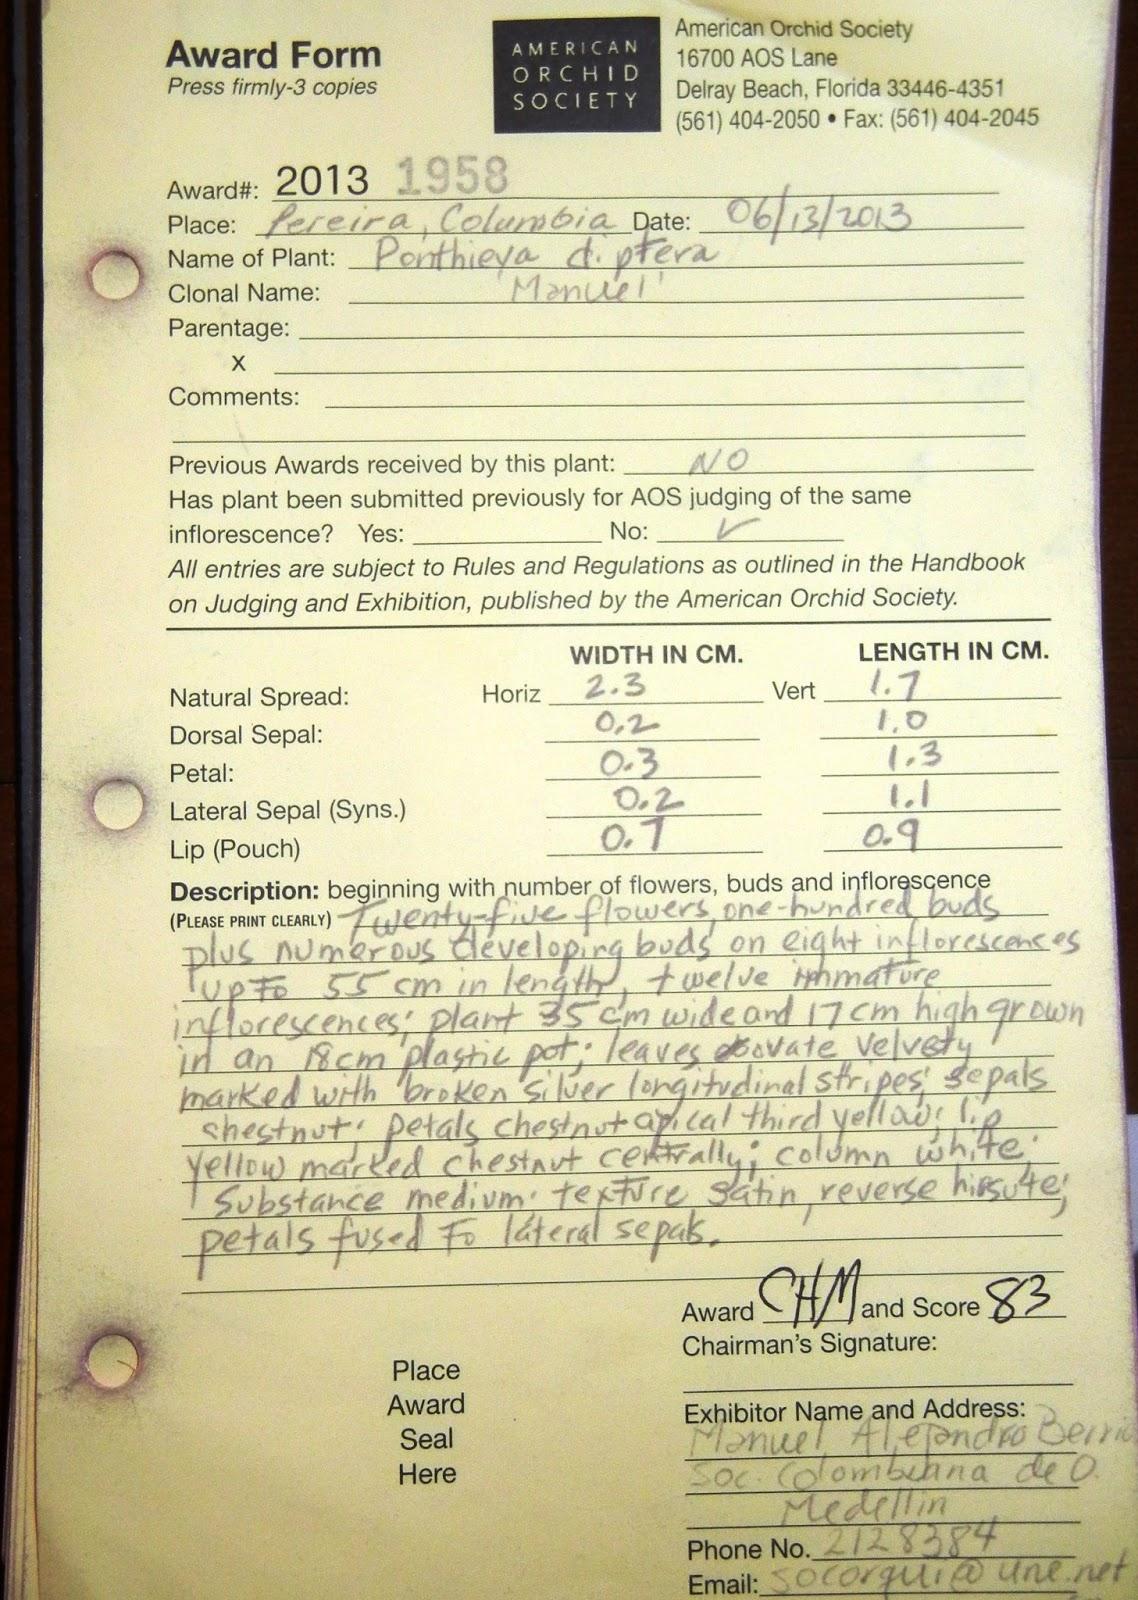 Award Form
Press firmly-3 copies
AMERICAN
ORCHID
SOCIETY
American Orchid Society
16700 AOS Lane
Delray Beach, Florida 33446-4351
(561) 404-2050 • Fax: (561) 404-2045
Award#: 2013 1958
Place: Pereira, Columbia Date: 06/13/2013
Name of Plant: Ponthieva diptera
Clonal Name: 'Manuel'
Parentage:
X
Comments:
Previous Awards received by this plant: NO
Has plant been submitted previously for AOS judging of the same
inflorescence? Yes: No: ✓
All entries are subject to Rules and Regulations as outlined in the Handbook
on Judging and Exhibition, published by the American Orchid Society.
WIDTH IN CM. LENGTH IN CM.
Natural Spread: Horiz 2.3 Vert 1.7
Dorsal Sepal: 0.2 1.0
Petal: 0.3 1.3
Lateral Sepal (Syns.) 0.2 1.1
Lip (Pouch) 0.7 0.9
Description: beginning with number of flowers, buds and inflorescence
(PLEASE PRINT CLEARLY) Twenty-five flowers, one-hundred buds
plus numerous developing buds on eight inflorescences
up to 55 cm in length, twelve immature
inflorescences; plant 35 cm wide and 17 cm high grown
in an 18 cm plastic pot; leaves obovate velvety
marked with broken silver longitudinal stripes; sepals
chestnut; petals chestnut apical third yellow; lip
yellow marked chestnut centrally; column white;
substance medium; texture satin, reverse hirsute;
petals fused to lateral sepals.
Award CHM and Score 83
Chairman's Signature:
Place
Award
Seal
Here
Exhibitor Name and Address:
Manuel Alejandro Berrio
Soc. Colombiana de O.
Medellin
Phone No. 2128384
Email: socorqui@une.net